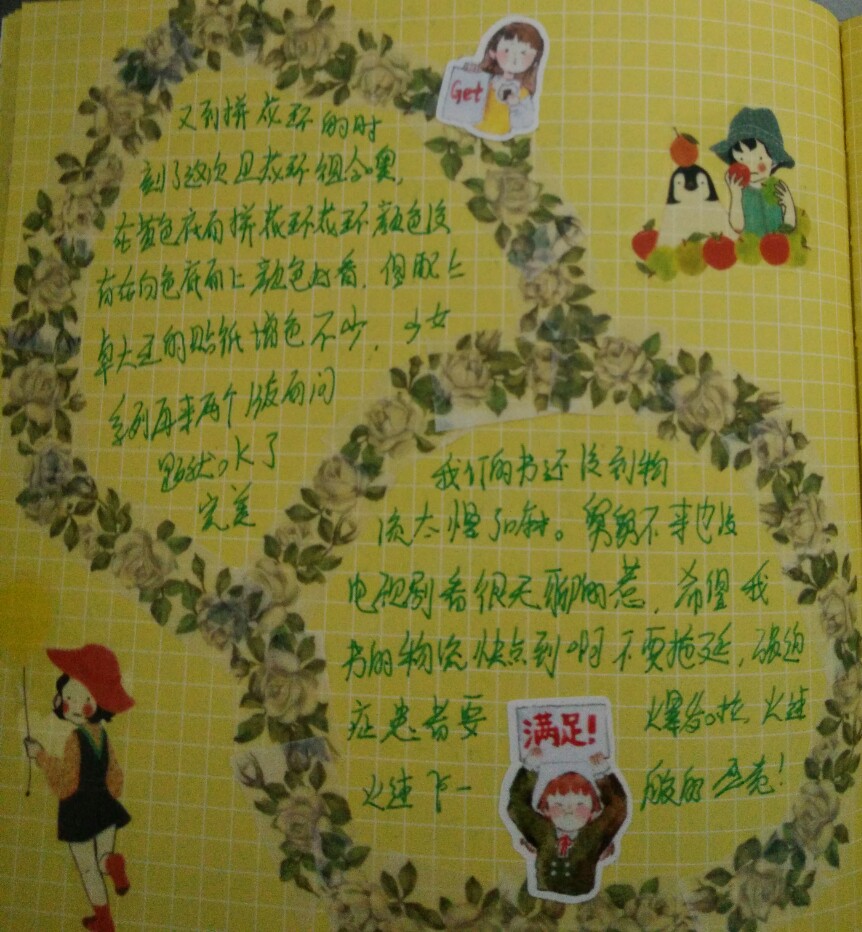 Get
又到拼花环的时
刻了这次且花环组合噢,
在黄色底面拼花环花环颜色没
有在白色底面上颜色好看,但配上
卓大王的贴纸增色不少,少女
系列再来两个版面问
题就OK了
完美
我们的书还没到物
流太慢了啊。舅舅不来也没
电视剧看很无聊的惹,希望我
书的物流快点到啊不要拖延,强迫
症患者要 爆发啦,火速
火速下一 般的 亚克!
满足!